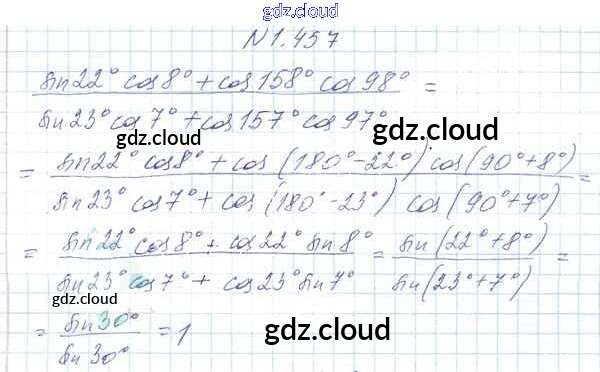 gdz.cloud
N1.457
sin22° cos8° + cos158° cos98° =
sin23° cos7° + cos157° cos97°
gdz.cloud
gdz.cloud
= sin22° cos8° + cos(180°-22°) cos(90°+8°) =
sin23° cos7° + cos(180°-23°) cos(90°+7°)
gdz.cloud
gdz.cloud
= sin22° cos8° + cos22° sin8° = sin(22°+8°) =
sin23° cos7° + cos23° sin7° sin(23°+7°)
gdz.cloud
= sin30° = 1
sin30°
gdz.cloud
gdz.cloud